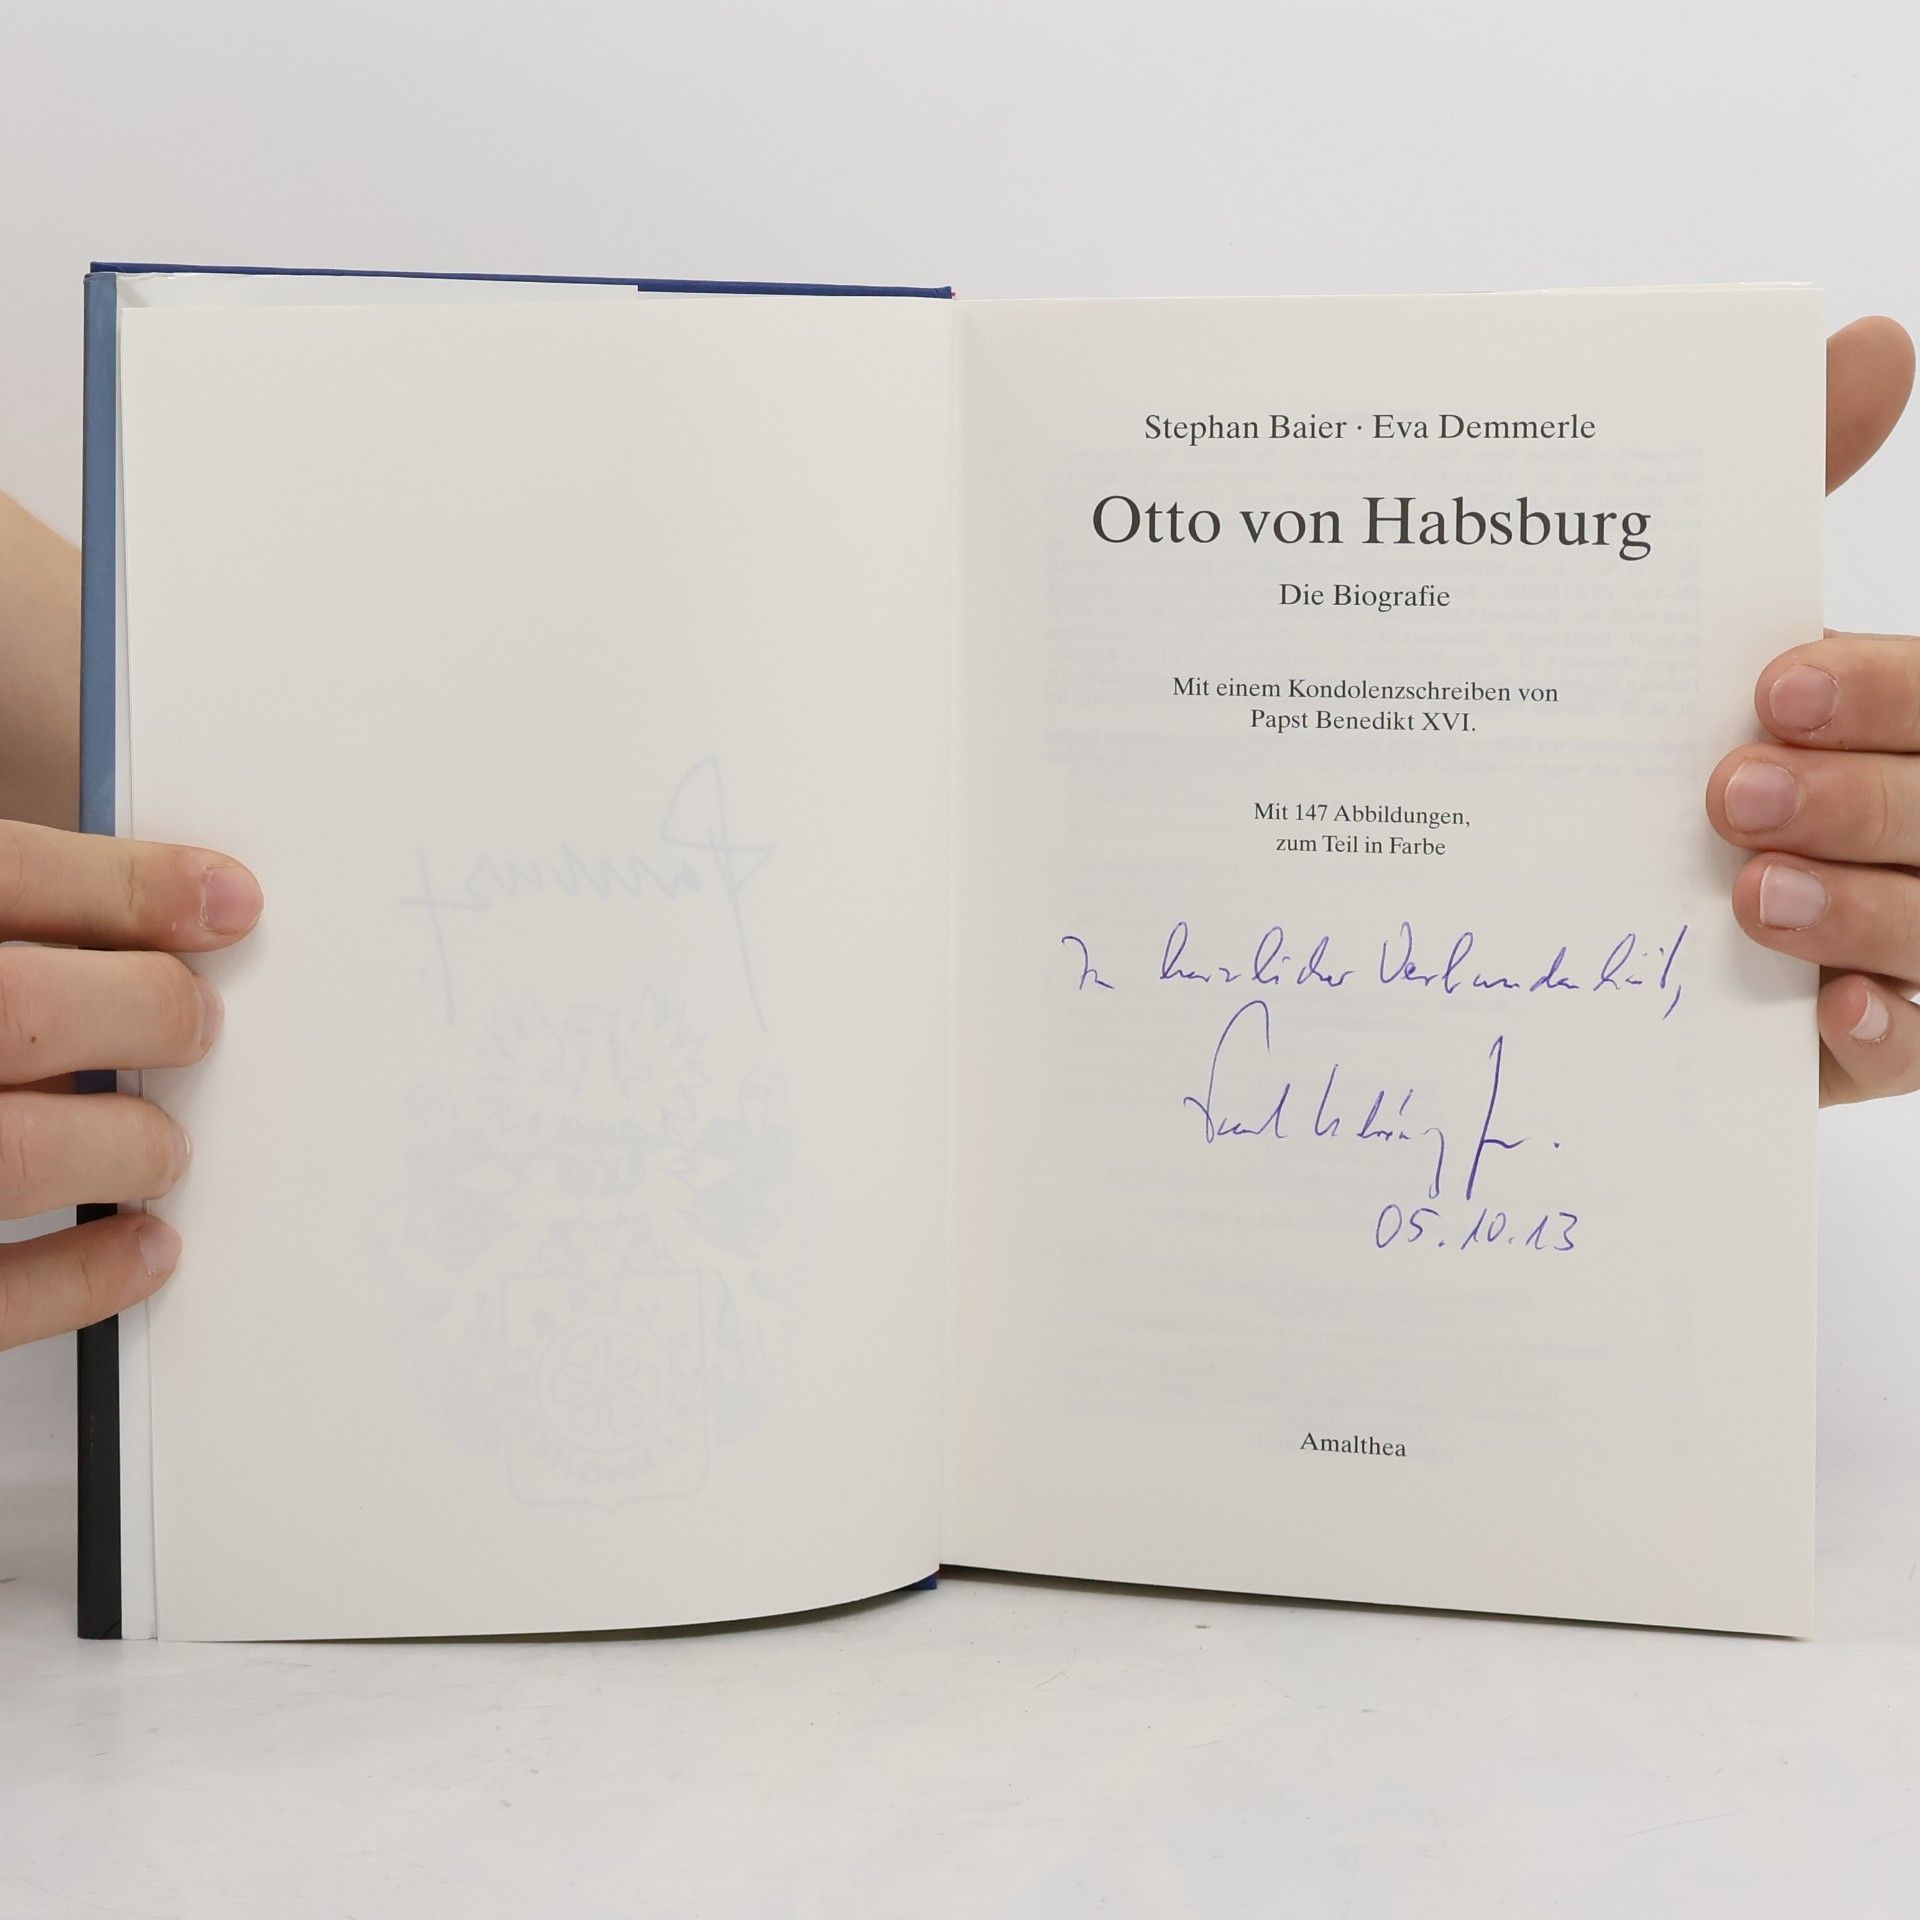 Stephan Baier · Eva Demmerle
Otto von Habsburg
Die Biografie
Mit einem Kondolenzschreiben von
Papst Benedikt XVI.
Mit 147 Abbildungen,
zum Teil in Farbe
In herzlicher Verbundenheit,
05.10.13
Amalthea